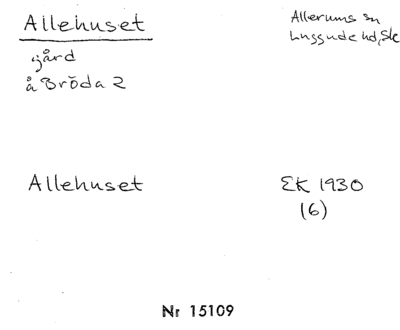 Allehuset
Allerums sn
Luggude hd, Sk
gård
å Bröda 2
Allehuset
EK 1930
(6)
Nr 15109